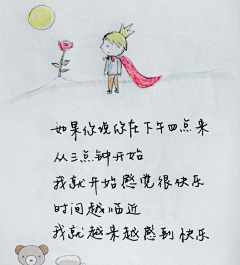 如果你说你在下午四点来
从三点钟开始
我就开始感觉很快乐
时间越临近
我就越来越感到快乐